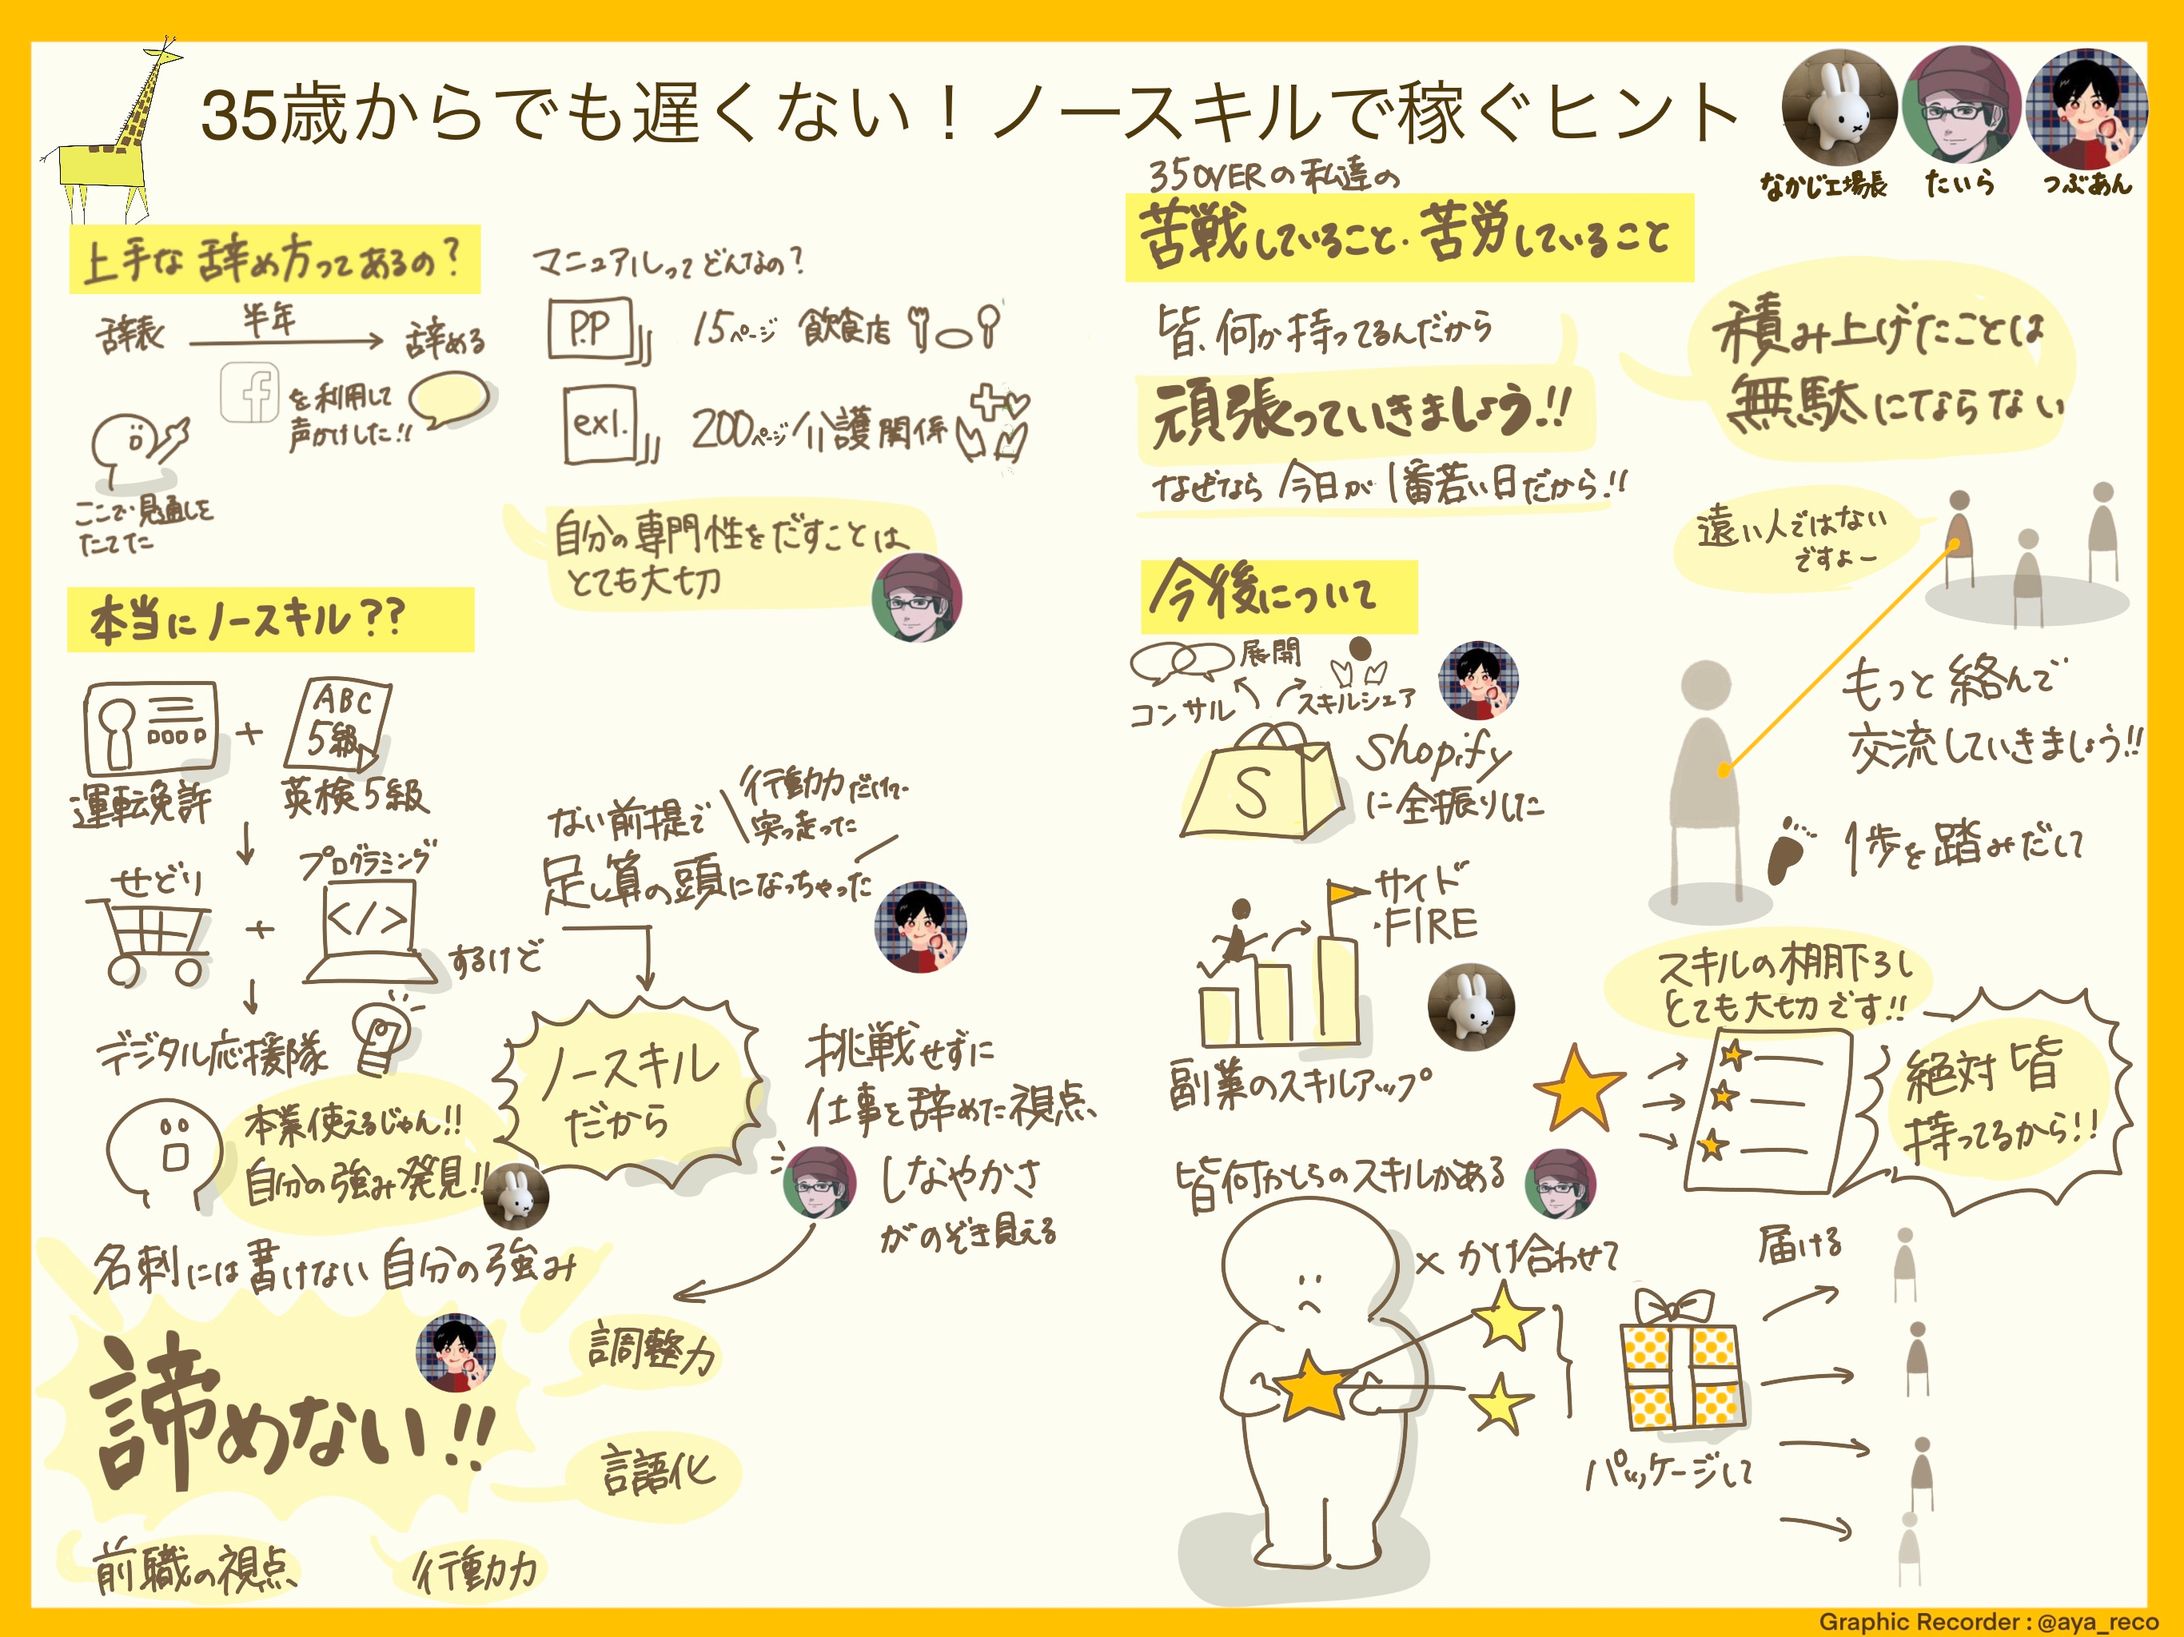 35歳からでも遅くない！ノースキルで稼ぐヒント
なかじ工場長
たいら
つぶあん
上手な辞め方ってあるの？
辞表
半年
辞める
を利用して
声かけした!!
ここで見通しを
たてた
マニュアルってどんなの？
P.P
15ページ 飲食店
exl.
200ページ 介護関係
自分の専門性をだすことは
とても大切
本当にノースキル??
ABC
5級
運転免許
+
英検5級
せどり
+
プログラミング
</>
するけど
デジタル応援隊
本業使えるじゃん!!
自分の強み発見!!
ない前提で
行動力だけで
突っ走った
足し算の頭になっちゃった
ノースキル
だから
挑戦せずに
仕事を辞めた視点
しなやかさ
がのぞき見える
名刺には書けない自分の強み
諦めない!!
調整力
言語化
前職の視点
行動力
35OVERの私達の
苦戦していること・苦労していること
皆、何か持ってるんだから
頑張っていきましょう!!
なぜなら今日が1番若い日だから!!
積み上げたことは
無駄にならない
遠い人ではない
ですよー
もっと絡んで
交流していきましょう!!
1歩を踏みだして
今後について
展開
コンサル
スキルシェア
S
Shopify
に全振りした
サイド
FIRE
副業のスキルアップ
スキルの棚下ろし
とても大切です!!
絶対皆
持ってるから!!
皆何かしらのスキルがある
×かけ合わせて
パッケージして
届ける
Graphic Recorder : @aya_reco